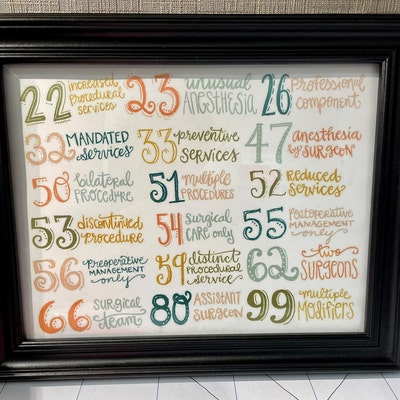 22 increased procedural services
23 unusual anesthesia
26 professional component
32 MANDATED services
33 preventive SERVICES
47 anesthesia by SURGEON
50 bilateral PROCEDURE
51 multiple PROCEDURES
52 REDUCED SERVICES
53 discontinued Procedure
54 surgical CARE only
55 Postoperative MANAGEMENT only
56 Preoperative MANAGEMENT only
59 distinct PROCEDURAL service
62 two SURGEONS
66 surgical team
80 ASSISTANT SURGEON
99 multiple Modifiers